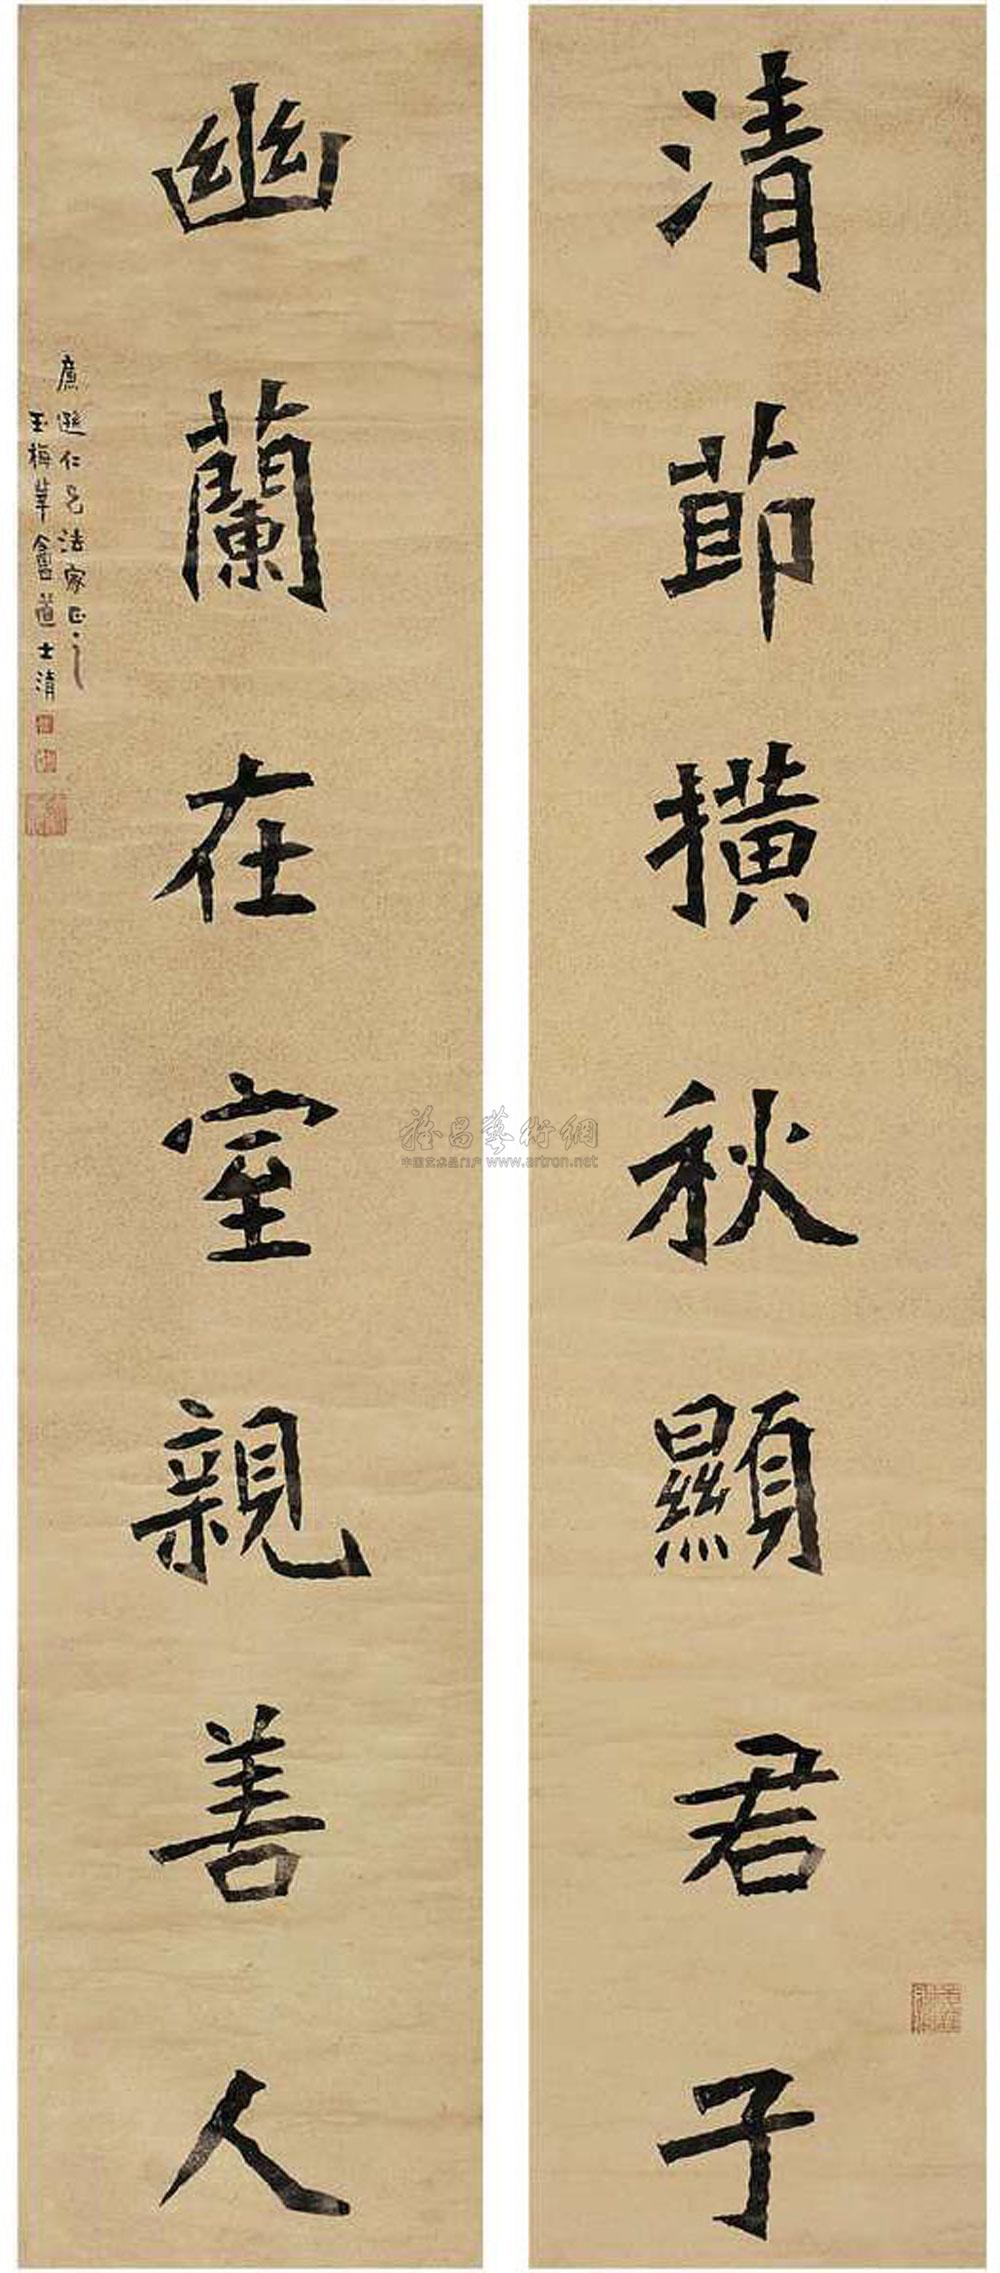 清節撗秋顯君子
幽蘭在室親善人
廉遜仁兄法家正之
玉梅華盦道士清
雅昌藝術網
中国艺术品门户 www.artron.net